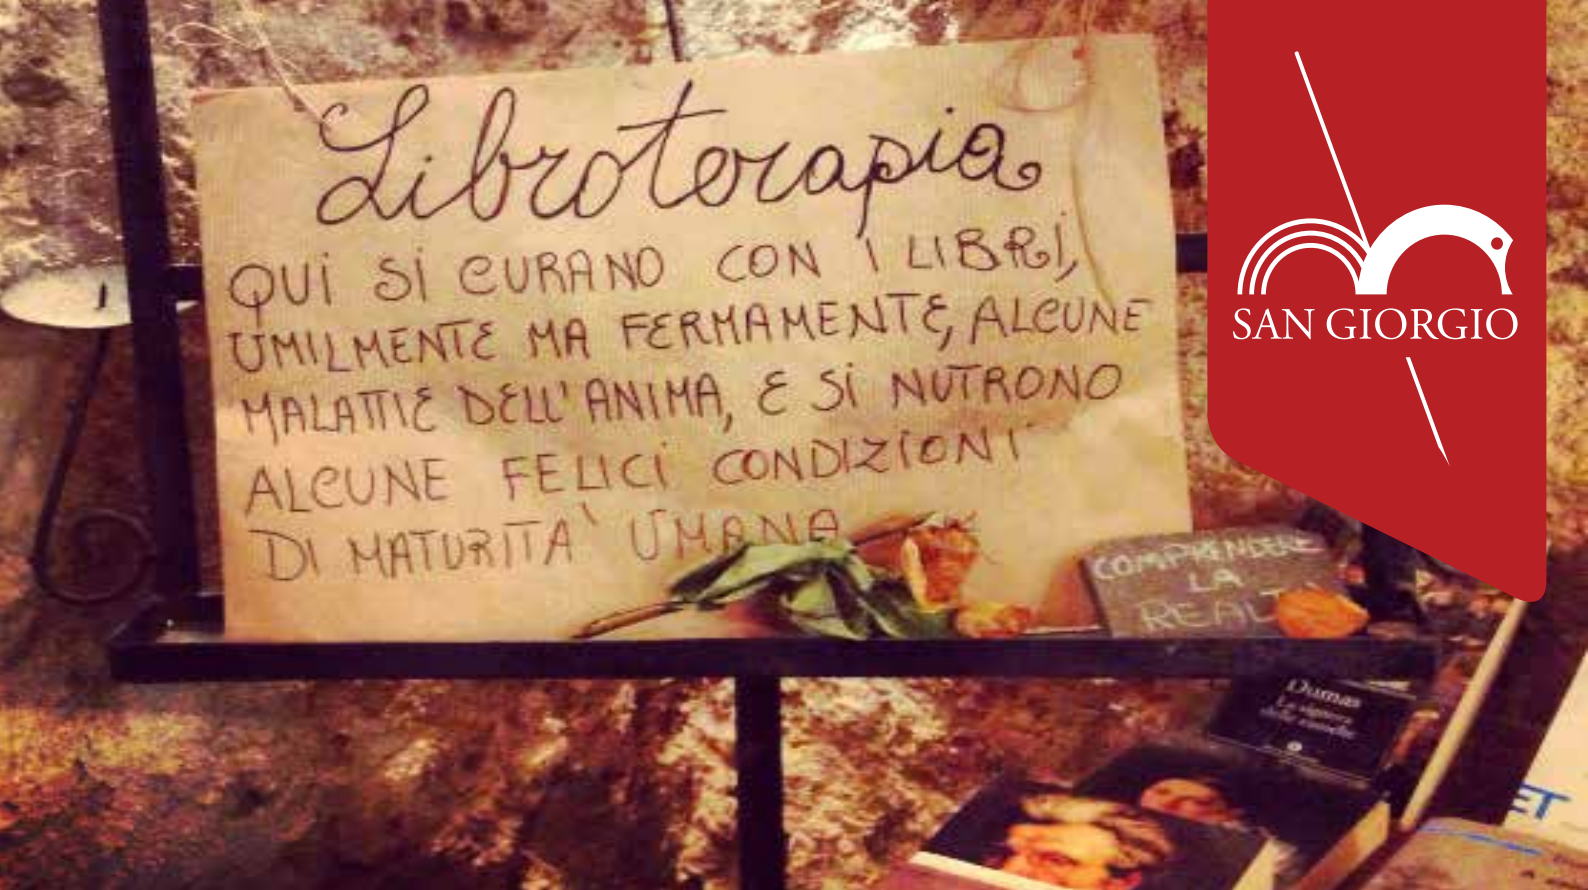 Libroterapia
QUI SI CURANO CON I LIBRI,
UMILMENTE MA FERMAMENTE, ALCUNE
MALATTIE DELL'ANIMA, E SI NUTRONO
ALCUNE FELICI CONDIZIONI
DI MATURITA' UMANA
COMPRENDERE
LA
REALT
SAN GIORGIO
Dumas
La signora
delle camelie
ET